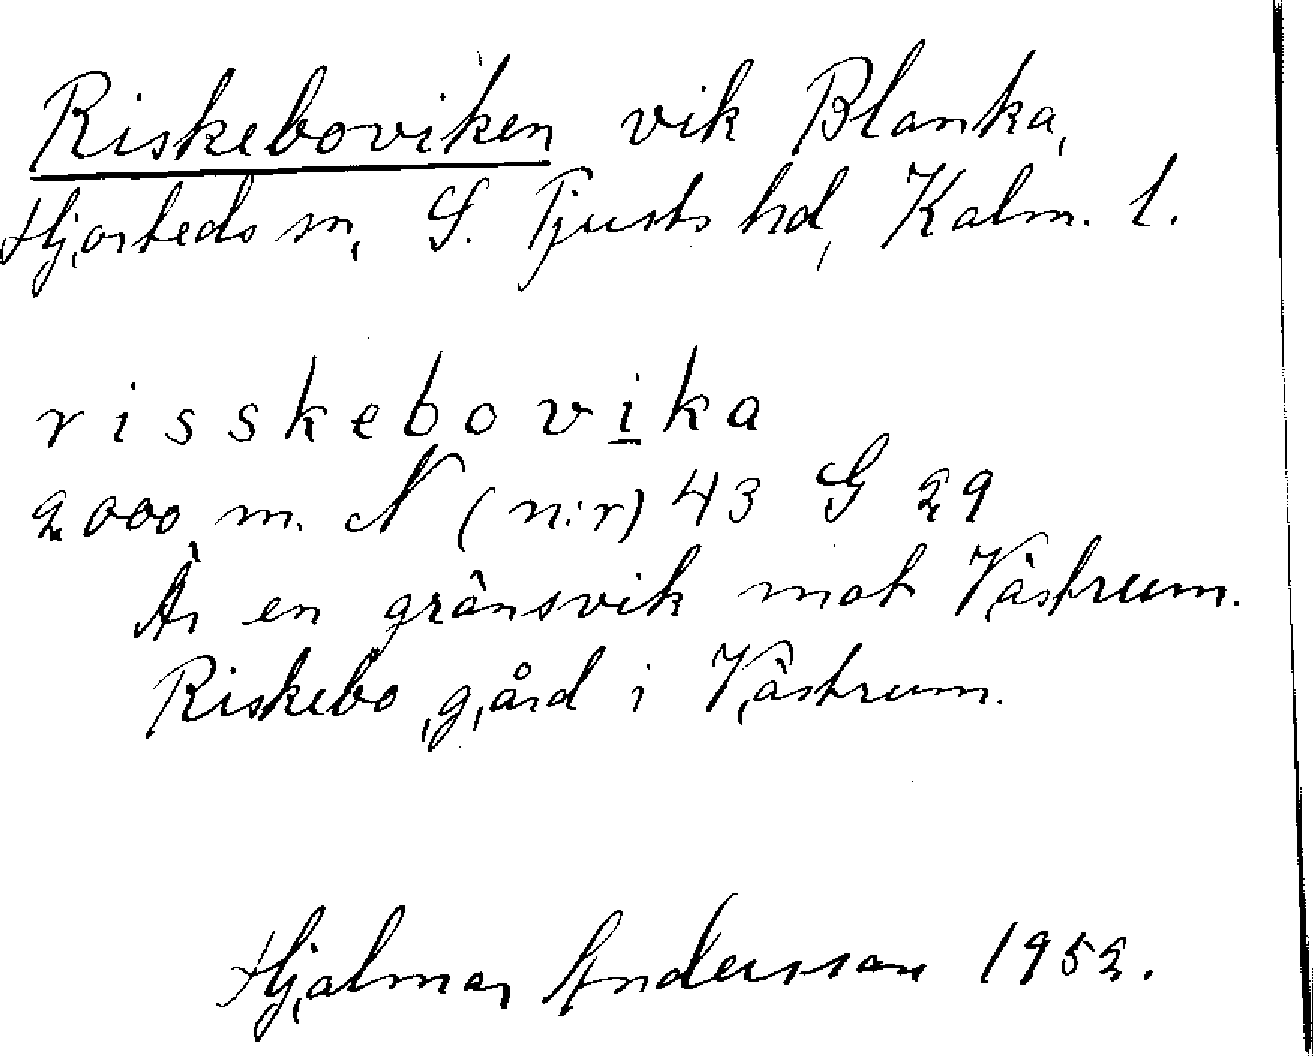 Riskeboviken vik Blanka,
Hjorteds sn, S. Tjusts hd, Kalm. l.
risskebovika
2000 m. N (n:r) 43 G 29
Är en gränsvik mot Västrum.
Riskebo, gård i Västrum.
Hjalmar Andersson 1952.